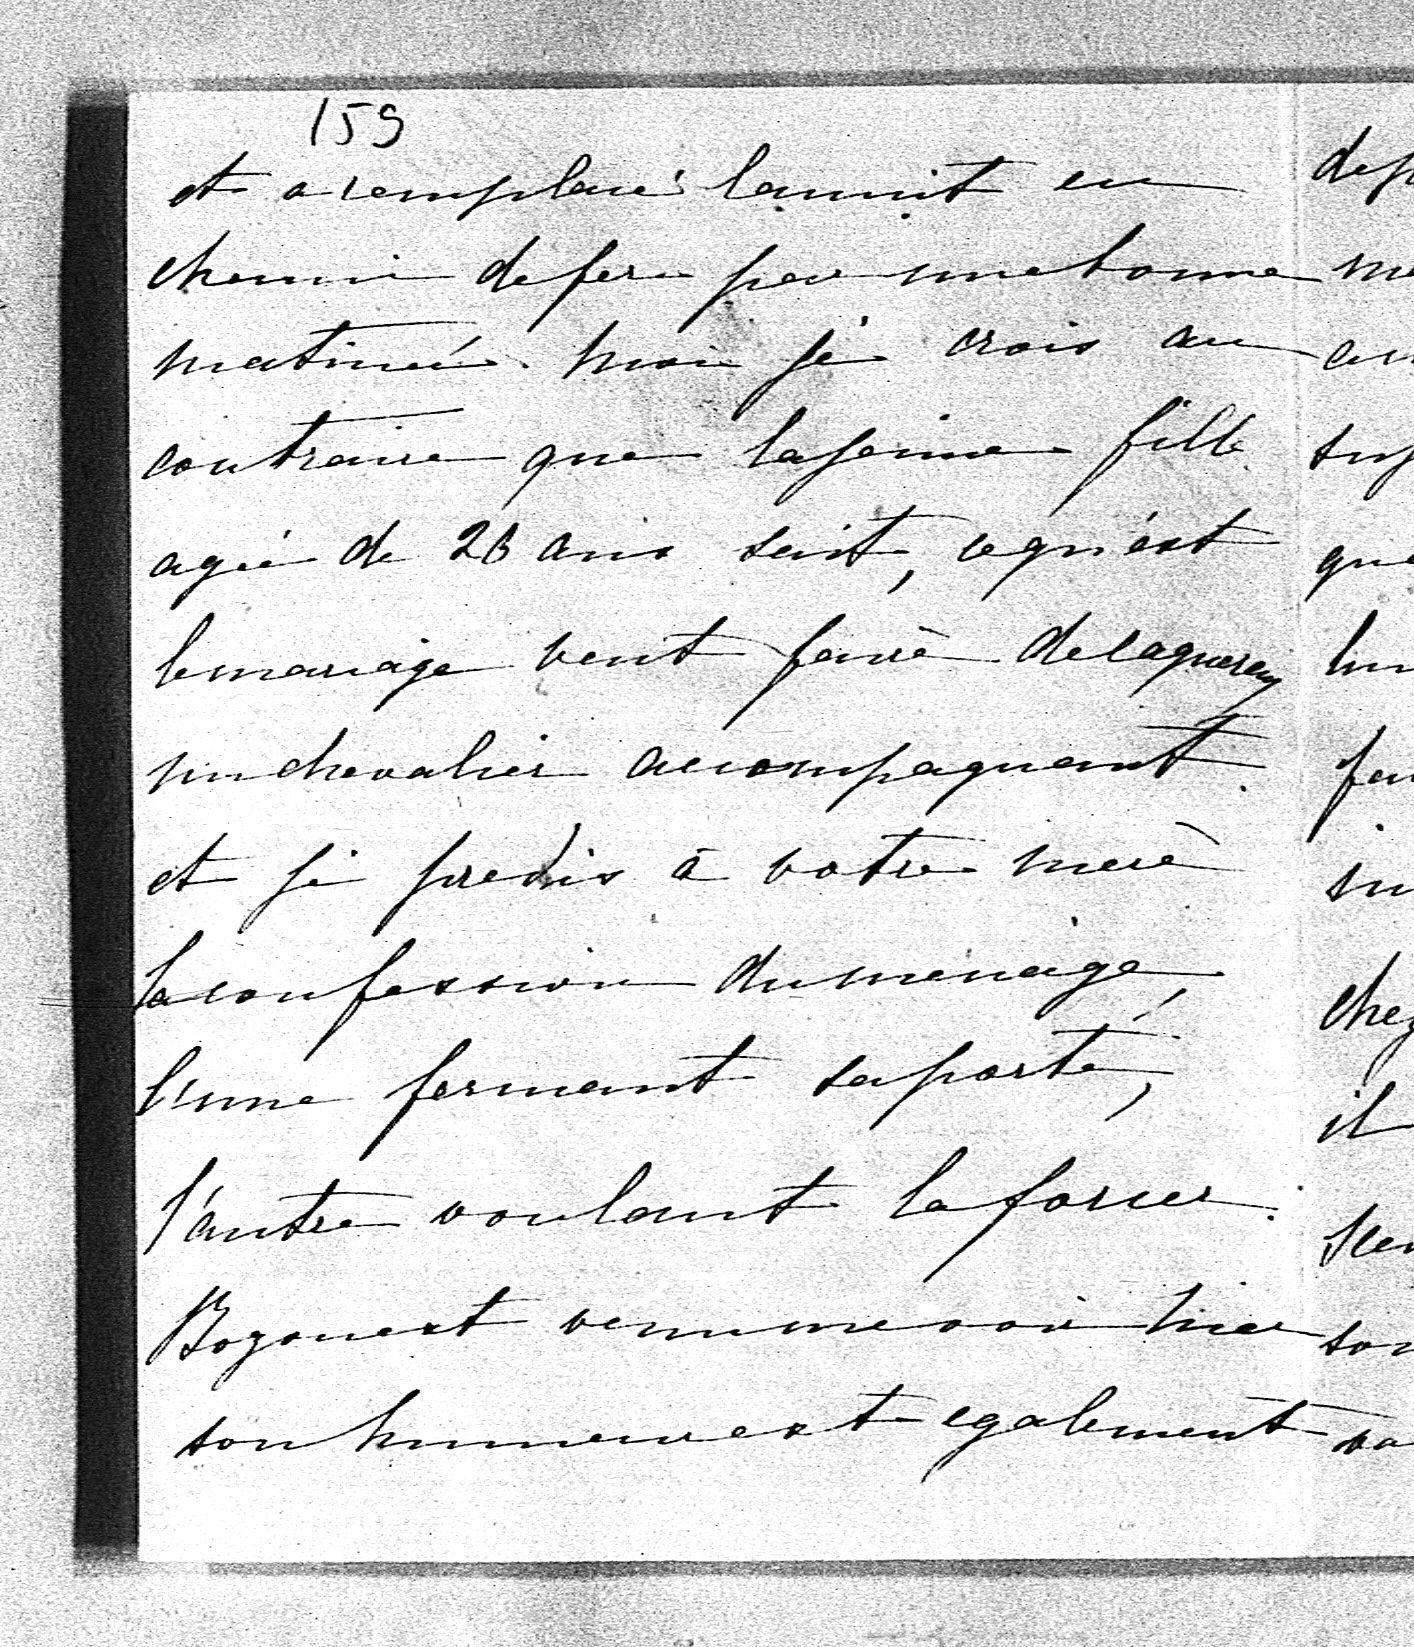 159
et a remplacé la nuit en
chemin de fer par une bonne
matinée. moi je crois au
contraire que la jeune fille
agée de 23 ans sait, ce qu'est
le mariage veut faire de la guerre
un chevalier accompagnant.
et je predis à votre mère
la confession du menage,
l'une fermant sa porte,
l'autre voulant la forcer.
Bozon est venu me voir hier
son humeur est egalement